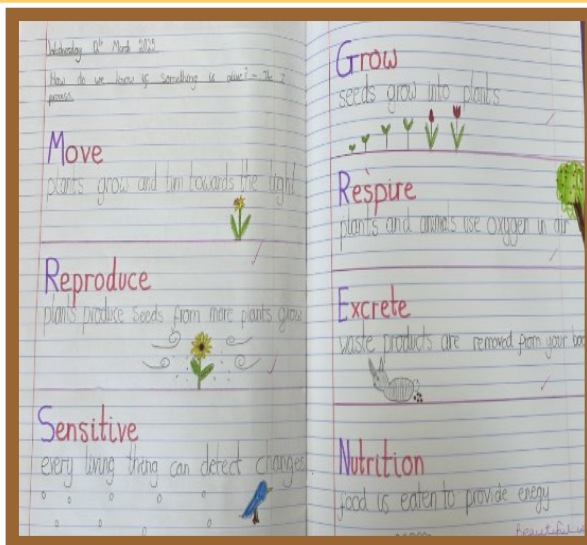 Wednesday 12th March 2025
How do we know if something is alive? - The 7
process
Move
plants grow and turn towards the light
Reproduce
plants produce seeds from more plants grow
Sensitive
every living thing can detect changes
Grow
seeds grow into plants
Respire
plants and animals use oxygen in air
Excrete
waste products are removed from your bod
Nutrition
food is eaten to provide enegy
beautiful